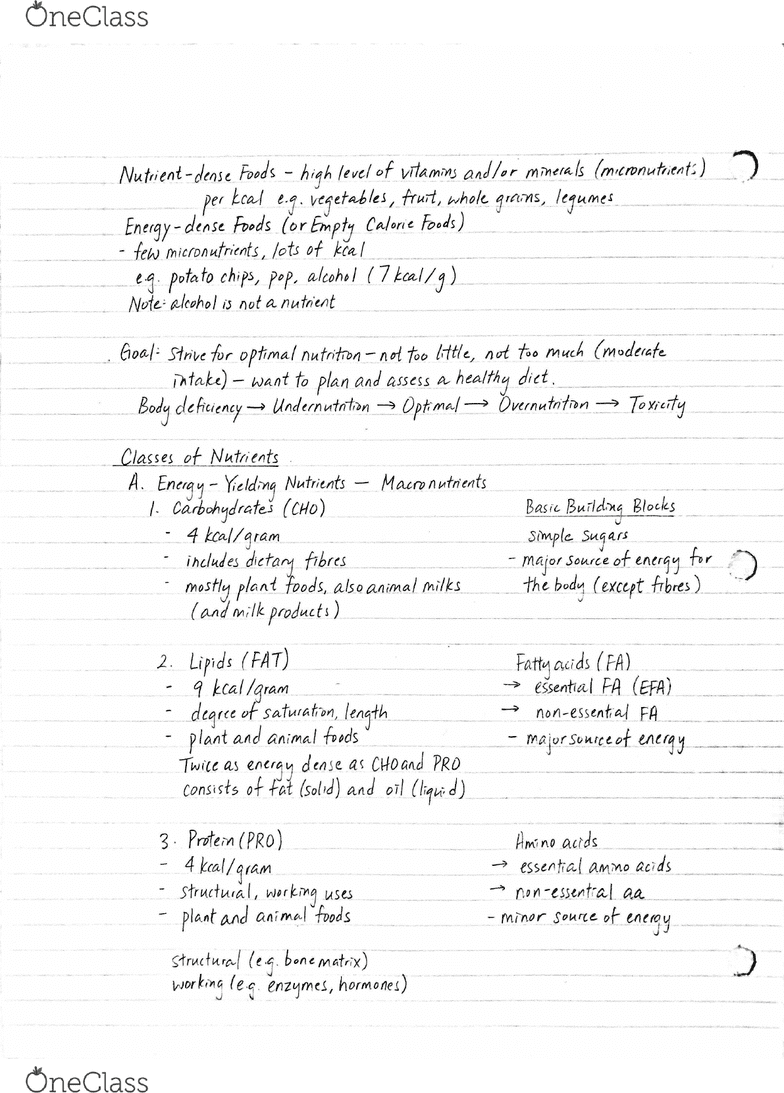 OneClass
Nutrient-dense Foods - high level of vitamins and/or minerals (micronutrients)
per kcal e.g. vegetables, fruit, whole grains, legumes
Energy-dense Foods (or Empty Calorie Foods)
- few micronutrients, lots of kcal
e.g. potato chips, pop, alcohol (7 kcal/g)
Note: alcohol is not a nutrient
Goal: Strive for optimal nutrition - not too little, not too much (moderate
intake) - want to plan and assess a healthy diet.
Body deficiency → Undernutrition → Optimal → Overnutrition → Toxicity
Classes of Nutrients
A. Energy-Yielding Nutrients - Macronutrients
1. Carbohydrates (CHO) Basic Building Blocks
- 4 kcal/gram simple sugars
- includes dietary fibres - major source of energy for
- mostly plant foods, also animal milks the body (except fibres)
(and milk products)
2. Lipids (FAT) Fatty acids (FA)
- 9 kcal/gram → essential FA (EFA)
- degree of saturation, length → non-essential FA
- plant and animal foods - major source of energy
Twice as energy dense as CHO and PRO
consists of fat (solid) and oil (liquid)
3. Protein (PRO) Amino acids
- 4 kcal/gram → essential amino acids
- structural, working uses → non-essential aa
- plant and animal foods - minor source of energy
structural (e.g. bone matrix)
working (e.g. enzymes, hormones)
OneClass